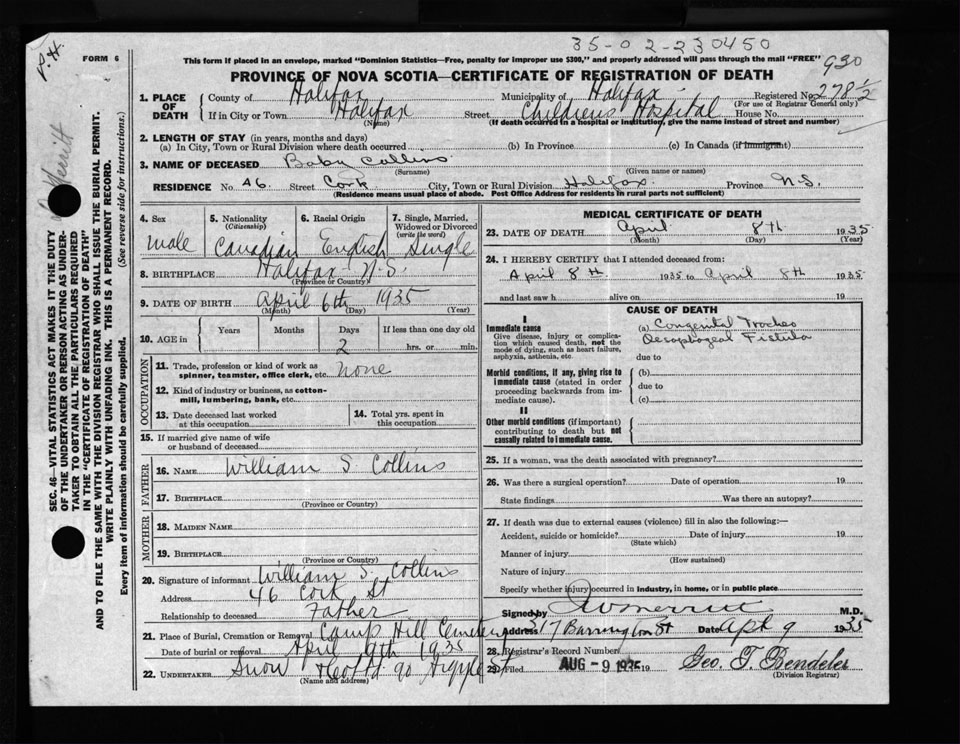 35-02-230450
P.H.
FORM 6
This form if placed in an envelope, marked "Dominion Statistics—Free, penalty for improper use $300," and properly addressed will pass through the mail "FREE"
930
PROVINCE OF NOVA SCOTIA—CERTIFICATE OF REGISTRATION OF DEATH
1. PLACE OF DEATH County of Halifax Municipality of Halifax Registered No. 278½
(For use of Registrar General only)
If in City or Town Halifax Street Childrens Hospital House No.
(Name) (If death occurred in a hospital or institution, give the name instead of street and number)
2. LENGTH OF STAY (in years, months and days)
(a) In City, Town or Rural Division where death occurred (b) In Province (c) In Canada (if immigrant)
3. NAME OF DECEASED Baby Collins
(Surname) (Given name or names)
RESIDENCE No. 46 Street Cork City, Town or Rural Division Halifax Province N.S.
(Residence means usual place of abode. Post Office Address for residents in rural parts not sufficient)
SEC. 46—VITAL STATISTICS ACT MAKES IT THE DUTY
OF THE UNDERTAKER OR PERSON ACTING AS UNDER-
TAKER TO OBTAIN ALL THE PARTICULARS REQUIRED
IN THE "CERTIFICATE OF REGISTRATION OF DEATH"
AND TO FILE THE SAME WITH THE DIVISION REGISTRAR WHO SHALL ISSUE THE BURIAL PERMIT.
WRITE PLAINLY WITH UNFADING INK. THIS IS A PERMANENT RECORD.
Every item of information should be carefully supplied. (See reverse side for instructions.)
Merritt
4. Sex 5. Nationality (Citizenship) 6. Racial Origin 7. Single, Married, Widowed or Divorced (write the word)
male Canadian English Single
8. BIRTHPLACE Halifax N.S.
(Province or Country)
9. DATE OF BIRTH April 6th 1935
(Month) (Day) (Year)
10. AGE in Years Months Days If less than one day old
2 hrs. or min.
OCCUPATION
11. Trade, profession or kind of work as
spinner, teamster, office clerk, etc. none
12. Kind of industry or business, as cotton-
mill, lumbering, bank, etc.
13. Date deceased last worked
at this occupation
14. Total yrs. spent in
this occupation
15. If married give name of wife
or husband of deceased
FATHER
16. NAME William S. Collins
17. BIRTHPLACE
(Province or Country)
MOTHER
18. MAIDEN NAME
19. BIRTHPLACE
(Province or Country)
20. Signature of informant William S. Collins
Address 46 Cork St
Relationship to deceased Father
21. Place of Burial, Cremation or Removal Camp Hill Cemetery
Date of burial or removal April 9th 1935
22. UNDERTAKER Snow & Co Ltd 90 Argyle St
(Name and address)
MEDICAL CERTIFICATE OF DEATH
23. DATE OF DEATH April 8th 1935
(Month) (Day) (Year)
24. I HEREBY CERTIFY that I attended deceased from:
April 8th 1935 to April 8th 1935
and last saw h alive on 19
CAUSE OF DEATH
I
Immediate cause
Give disease, injury or complica-
tion which caused death, not the
mode of dying, such as heart failure,
asphyxia, asthenia, etc.
(a) Congenital Tracheo
Oesophageal Fistula
due to
Morbid conditions, if any, giving rise to
immediate cause (stated in order
proceeding backwards from im-
mediate cause).
(b)
due to
(c)
II
Other morbid conditions (if important)
contributing to death but not
causally related to immediate cause.
25. If a woman, was the death associated with pregnancy?
26. Was there a surgical operation? Date of operation 19
State findings Was there an autopsy?
27. If death was due to external causes (violence) fill in also the following:—
Accident, suicide or homicide? Date of injury 19
(State which)
Manner of injury
(How sustained)
Nature of injury
Specify whether injury occurred in industry, in home, or in public place
Signed by Merritt M.D.
Address 317 Barrington St Date Apl 9 1935
28. Registrar's Record Number
29. Filed AUG -9 1935 19 Geo. T. Bendeler
(Division Registrar)